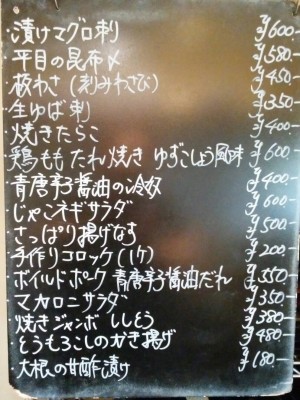 漬けマグロ刺 ¥600.-
平目の昆布〆 ¥580.-
板わさ（刻みわさび） ¥450.-
生ゆば刺 ¥350.-
焼きたらこ ¥400.-
鶏ももたれ焼き ゆずこしょう風味 ¥600.-
青唐辛子醤油の冷奴 ¥400.-
じゃこネギサラダ ¥600.-
さっぱり揚げなす ¥500.-
手作りコロッケ（1ケ） ¥200.-
ボイルドポーク 青唐辛子醤油だれ ¥550.-
マカロニサラダ ¥350.-
焼きジャンボししとう ¥380.-
とうもろこしのかき揚げ ¥480.-
大根の甘酢漬け ¥180.-